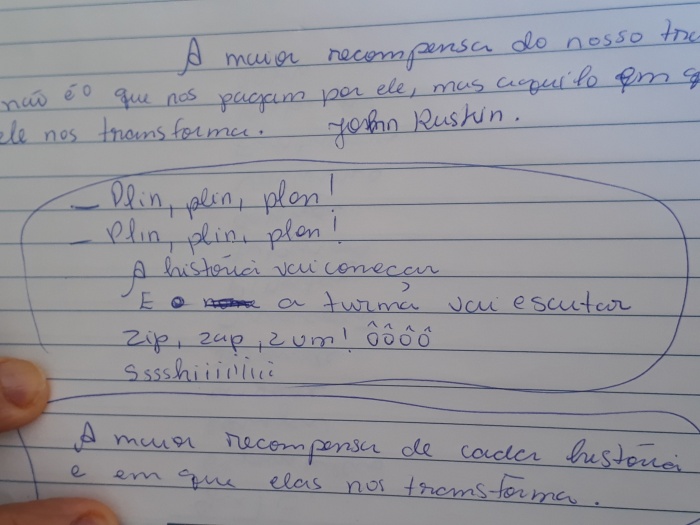 A maior recompensa do nosso tra
não é o que nos pagam por ele, mas aquilo em q
ele nos transforma. John Ruskin.
— Plin, plin, plon!
— Plin, plin, plon!
A história vai conecar
E o a turma vai escutar
Zip, zap, zum! ôôôô
Sssshiiiiiiiii
A maior recompensa de cada história
e em que elas nos transforma.